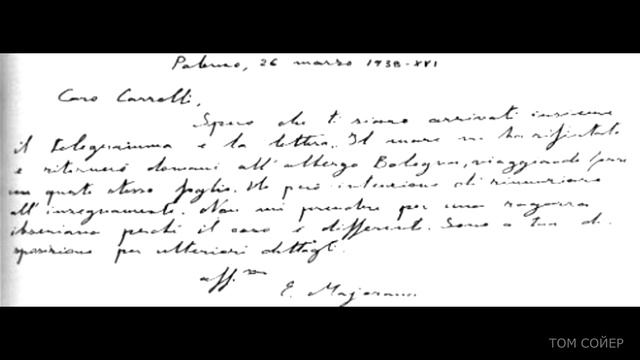 Palermo, 26 marzo 1938-XVI
Caro Carrelli,
Spero che ti siano arrivati insieme
il telegramma e la lettera. Il mare mi ha rifiutato
e ritornerò domani all'albergo Bologna, viaggiando forse
con questo stesso foglio. Ho però intenzione di rinunziare
all'insegnamento. Non mi prendere per una ragazza
ibseniana perché il caso è differente. Sono a tua di-
sposizione per ulteriori dettagli.
aff.mo
E. Majorana
ТОМ СОЙЕР